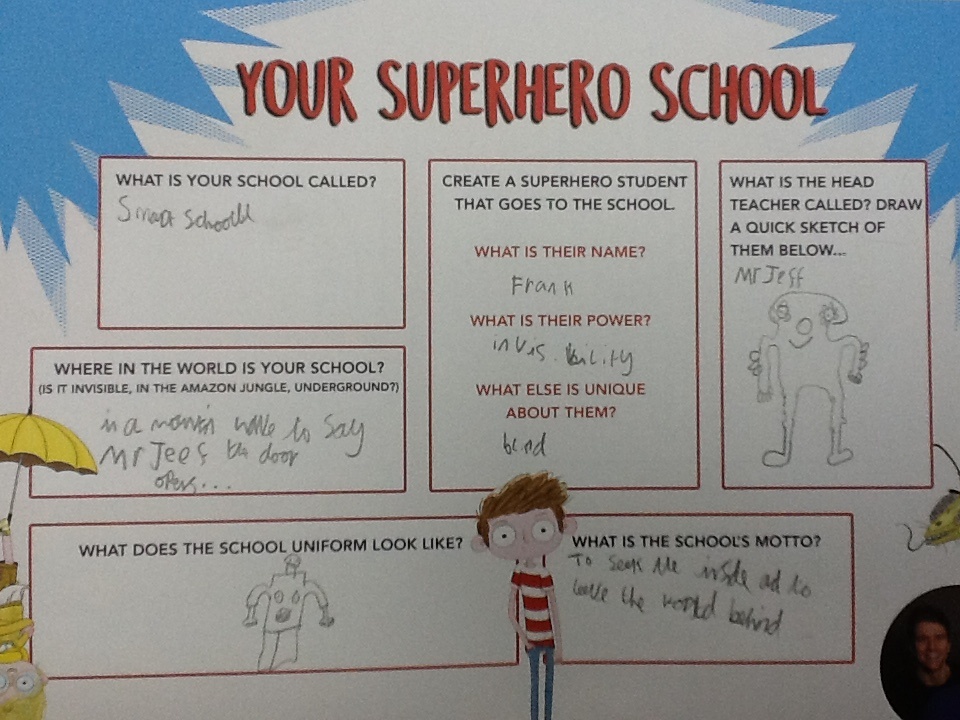 YOUR SUPERHERO SCHOOL
WHAT IS YOUR SCHOOL CALLED?
WHERE IN THE WORLD IS YOUR SCHOOL?
(IS IT INVISIBLE, IN THE AMAZON JUNGLE, UNDERGROUND?)
in a to say
Mr Jeef the door
opens...
CREATE A SUPERHERO STUDENT
THAT GOES TO THE SCHOOL.
WHAT IS THEIR NAME?
Frank
WHAT IS THEIR POWER?
invis.bility
WHAT ELSE IS UNIQUE
ABOUT THEM?
WHAT IS THE HEAD
TEACHER CALLED? DRAW
A QUICK SKETCH OF
THEM BELOW...
Mr Jeff
WHAT DOES THE SCHOOL UNIFORM LOOK LIKE?
WHAT IS THE SCHOOL'S MOTTO?
To seek the inside ad to
the world behind